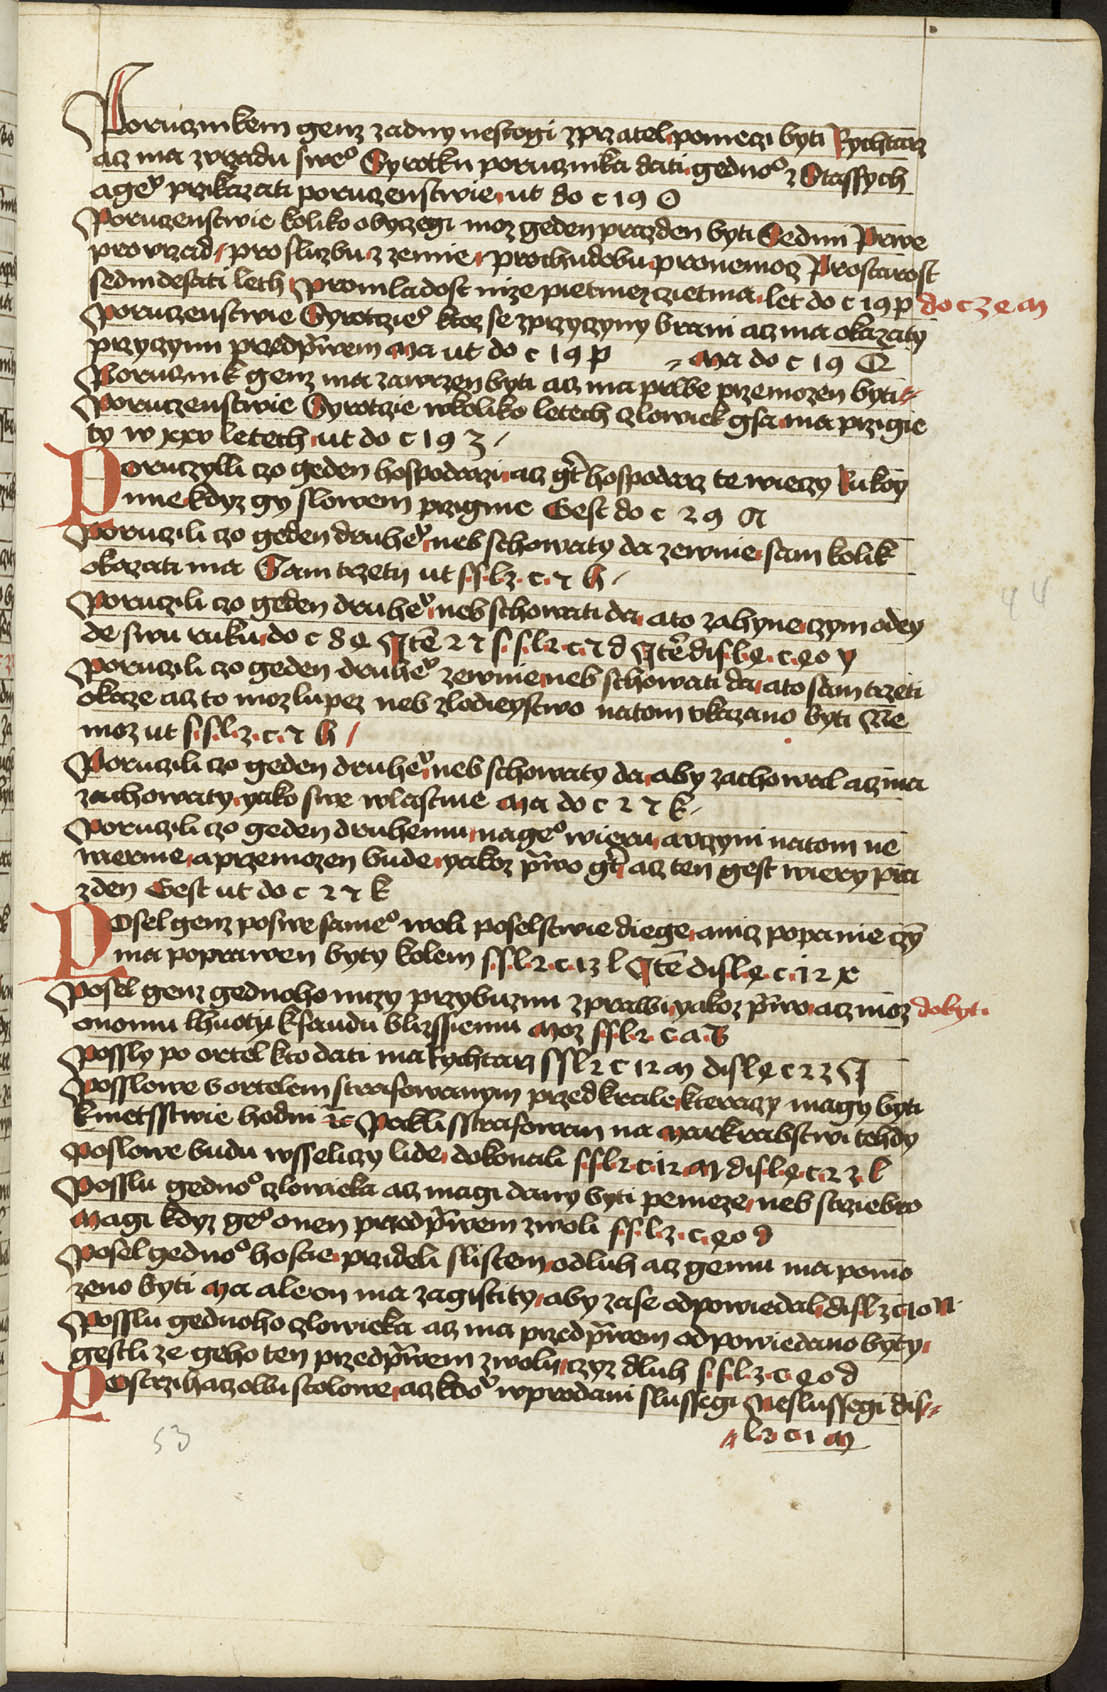 Poruicznikem genz zadny nestogi zprzatel pomeczi byti Rychtarz
acz ma zvrzadu sweº Syrotku porucznika dati gednoº z Stassych
a geº przikazati poruczenstwie ut do c 19 O
Poruczenstwie koliko obyczegi moz geden prazden byti Sedmi Prwe
pro vrzad pro sluzbu z zemie prochudobu pronemocz Prostarost
sedmdesati leth promladost nize pietmezczietma let do c 19 p do c z e m
Poruczenstwie Syrotczieº ktoz se zprzyczyny brani acz ma okazaty
przyczynu przed pwem Ma ut do c 19 p Ma do c 19 Q
Porucznik genz ma zawrzen byti acz ma prawe przemozen byti
Poruczenstwie Syrotczie wkoliko letech czlowiek gsa ma przigie
ty w xxv letech ut do c 19 z
Poruczylli czo geden hospodarzi acz gt hospodarz te wieczy Rukoy
mie kdyz gy slowem przigme Gest do c 29 a
Poruczili czo geden druheº neb schowaty da zewnie sam kolik
okazati ma Sam trzetij ut s.s.l.z. c. 7 h
Poruczili czo geden druheº neb schowati da ato zahyne czym odey
de swu ruku do c 8 e Jte 27 s.s.l.2. c. 7 d Jte dis.l.e. c. e o y
Poruczili czo geden druheº zewnie neb schowati da ato sam trzeti
okaze acz to moz lupez neb zlodieystwo natom vkazano byti Ne
moz ut s.s.l.z. c. 7 h
Poruczili czo geden druheº neb schowaty da aby zachowal acz ma
zachowaty yako swe wlastnie Ma do c 2 7 k
Poruczili czo geden druhemu na geº wieru a vczyni natom ne
wiernie a przemozen bude yakoz pwo gt acz ten gest wiery pra
zden Gest ut do c 2 7 k
Posel genz poswe sameº woli poselstwie diege a nicz popranie czy
ma poprawen byty kolem s.s.l.2. c. 13 l Jte dis.l.e c. 12 x
Posel genz gednoho niczy przybuznu zprawi yakoz pwo acz moz dobyti
onomu lhuoty k saudu blizssiemu Moz s.s.l.2. c. a. B
Possly po ortel kto dati ma Rychtarz s s l 2 c 12 m dis l e c 2 z J
Posslowe s ortelem strafowanym przed krale kteraczy magy byti
kmetsstwie hodni etc Pakli sstrafowan na Markrabstwi tehdy
Poslowe budu wsseliczy lide dokonali s.s.l.2. c. 12 m dis.l.e. c. 2 z. l
Posslu gednoº czlowieka acz magi dany byti penieze neb strziebro
Magi kdyz geº onen przed pwem zwoli s.s.l.z. c. e o d
Posel gednoº hoste prziden s listem o dluh acz gemu ma pomo
zeno byti Ma ale on ma zagistity aby zase odpowiedal dis l z c 10 n
Posslu gednoho czlowieka acz ma przed pwem odpowiedano byty
gestli ze geho ten przed pwem zwolij czyz dluh s.s.l.z. c. e o d
Postrzihacz obu stolowe acz kdoº wprodani slussegi Neslussegi dis
l 2 c 1 m
53
44